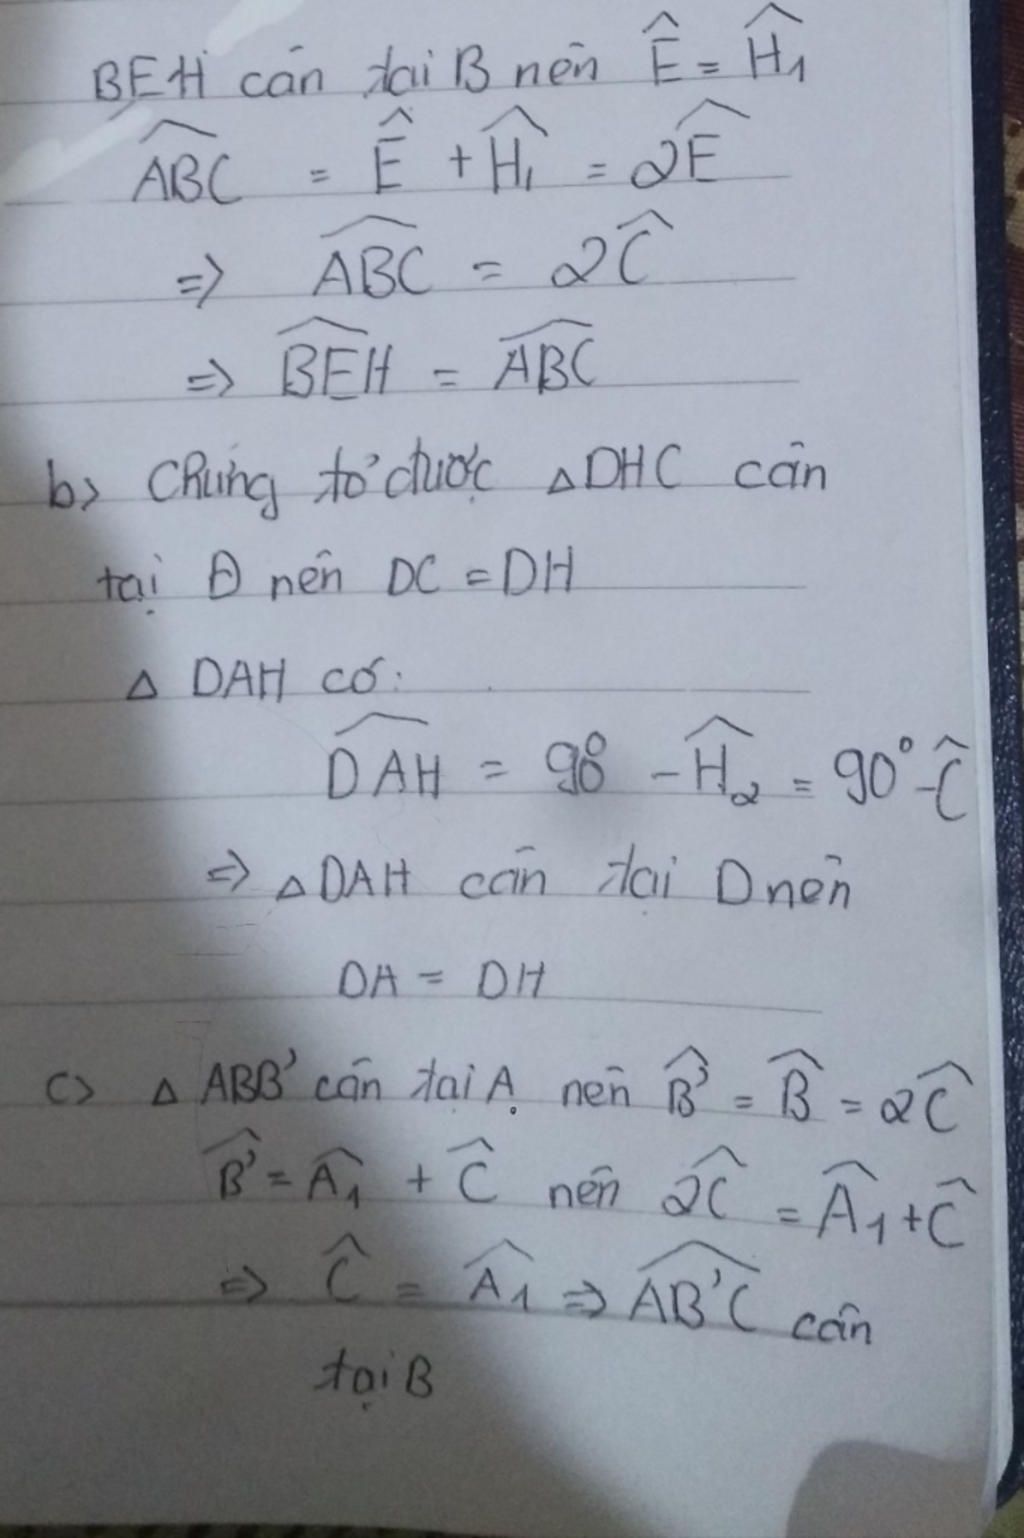 BEH cân tại B nên Ê = Ĥ₁
\widehat{ABC} = Ê + \widehat{H₁} = \widehat{2E}
=> \widehat{ABC} = 2Ĉ
=> \widehat{BEH} = \widehat{ABC}
b> Chứng tỏ được △DHC cân
tại Đ nên DC = DH
△ DAH có:
\widehat{DAH} = 90° - Ĥ₂ = 90° - Ĉ
=> △DAH cân tại D nên
DA = DH
c> △ ABB' cân tại A nên \widehat{B'} = \widehat{B} = \widehat{2C}
\widehat{B'} = \widehat{A₁} + Ĉ nên \widehat{2C} = \widehat{A₁} + Ĉ
=> Ĉ = \widehat{A₁} => \widehat{AB'C} cân
tại B